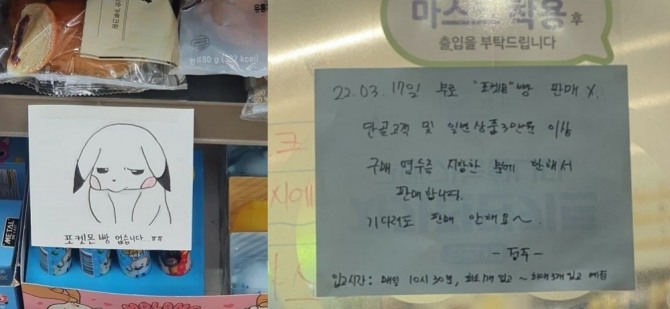 80g
kcal
METAL
포켓몬 빵 없습니다..ㅠㅠ
마스크 착용 후
출입을 부탁드립니다
22.03.17일 부로 "포켓몬" 빵 판매 X.
단골고객 및 일반상품 3만원 이상
구매 영수증 지참한 분께 한해서
판매합니다.
기다려도 판매 안해요~.
- 점주 -
입고시간: 매일 10시 30분, 최소 1개 입고 ~ 최대 3개 입고 예정